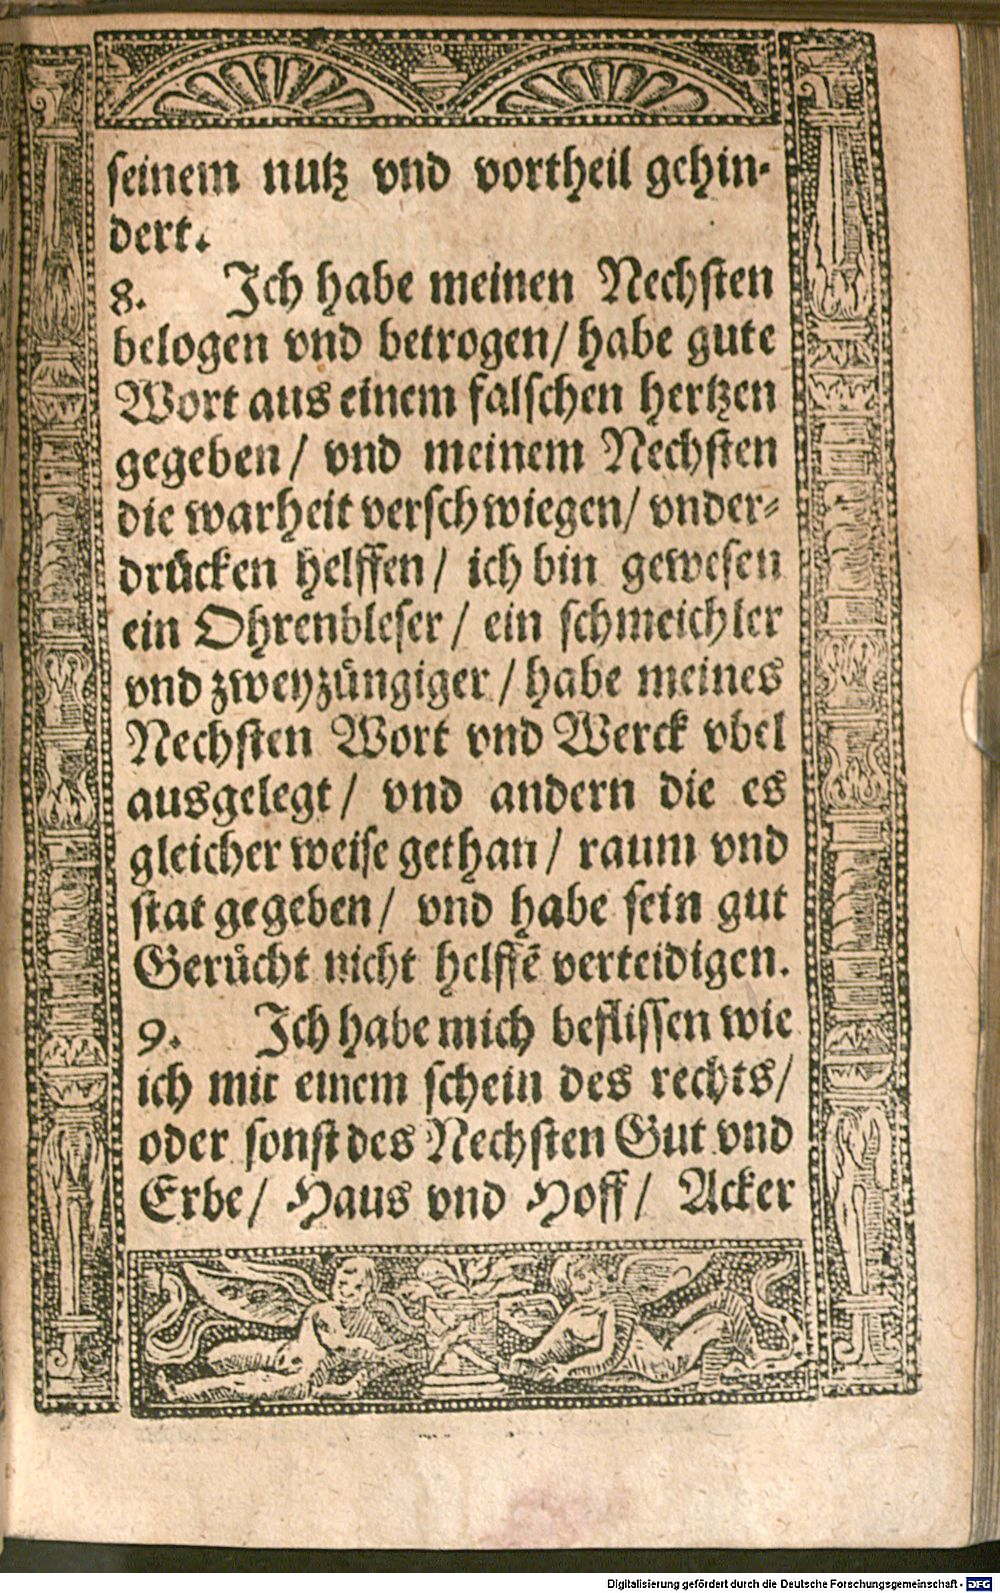 seinem nutz vnd vortheil gehin-
dert.
8. Ich habe meinen Nechsten
belogen vnd betrogen/ habe gute
Wort aus einem falschen hertzen
gegeben/ vnd meinem Nechsten
die warheit verschwiegen/ vnder-
drücken helffen/ ich bin gewesen
ein Ohrenbleser/ ein schmeichler
vnd zweyzüngiger/ habe meines
Nechsten Wort vnd Werck vbel
ausgelegt/ vnd andern die es
gleicher weise gethan/ raum vnd
stat gegeben/ vnd habe sein gut
Gerücht nicht helffē verteidigen.
9. Ich habe mich beflissen wie
ich mit einem schein des rechts/
oder sonst des Nechsten Gut vnd
Erbe/ Haus vnd Hoff/ Acker
Digitalisierung gefördert durch die Deutsche Forschungsgemeinschaft - DFG